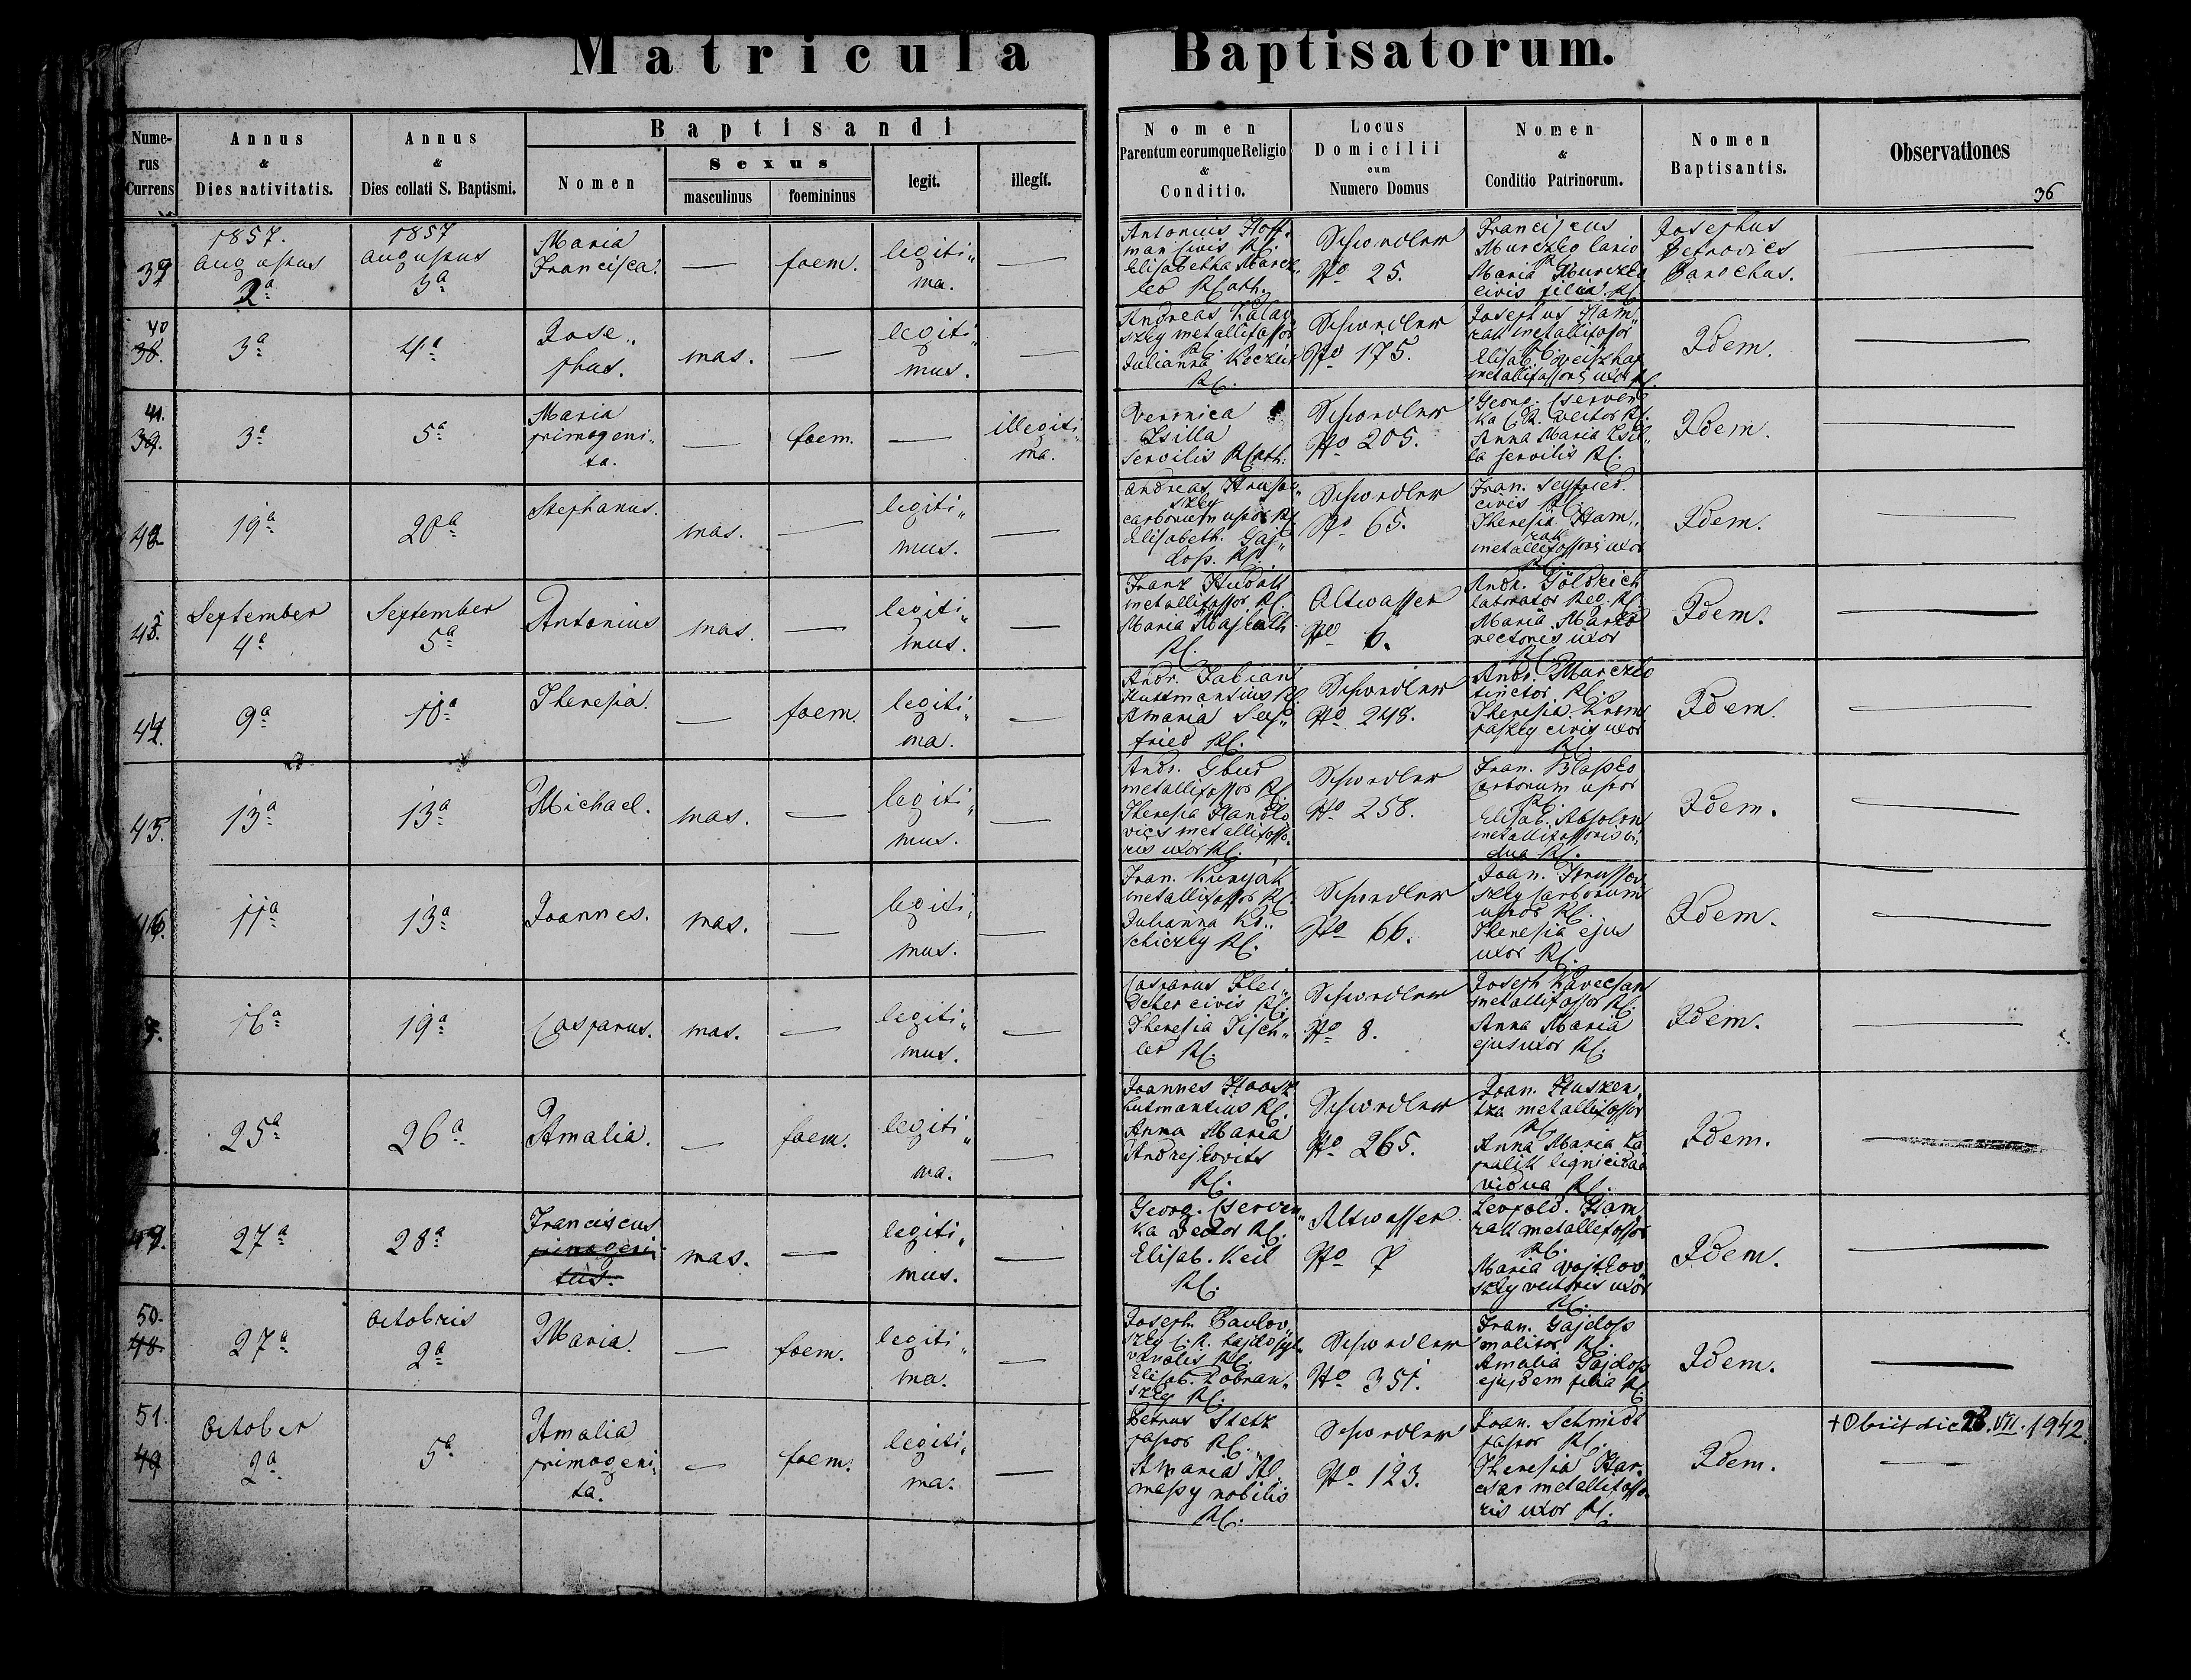 Matricula Baptisatorum.
36
Numerus Currens
Annus & Dies nativitatis.
Annus & Dies collati S. Baptismi.
Baptisandi
Nomen
Sexus
masculinus
foemininus
legit.
illegit.
Nomen Parentum eorumque Religio & Conditio.
Locus Domicilii cum Numero Domus
Nomen & Conditio Patrinorum.
Nomen Baptisantis.
Observationes
39
1857.
Augustus
2a
1857
Augustus
3a
Maria
Francisca.
—
foem.
legiti„
ma.
—
Antonius Hoff„
man civis RC.
Elisabetha
RCath.
Schwedler
No 25.
Franciscus
Murczko lanio
RC
Maria Murczko
civis filia RC
Josephus
Petrovics
Parochus.
40
38.
3a
4a
Jose„
phus.
mas.
—
legiti„
mus.
—
Andreas
szky metallifossor
RC.
Julianna
RC.
Schwedler
No 175.
Josephus Ham„
rak metallifossor
RC
Elisab.
metallifossoris uxor RC.
Idem.
41.
39.
3a
5a
Maria
primogeni„
ta.
—
foem.
—
illegiti„
ma.
Veronica
Zsilla
servilis RCath.
Schwedler
No 205.
Georg. Cserven„
ka C.R. vector RC.
Anna Maria Zsil„
la servilis RC.
Idem.
42
19a
20a
Stephanus.
mas.
—
legiti„
mus.
—
Andreas Hrusov„
szky
carbonum ustor RC
Elisabeth. Gaj„
dos. RC.
Schwedler
No 65.
Fran. Seyfried.
civis RC
Theresia Ham„
rak
metallifossoris uxor
RC.
Idem.
43.
September
4a
September
5a
Antonius
mas.
—
legiti„
mus.
—
Franz Hudák
metallifossor RC.
Maria
RC.
Altwasser
No 6.
Andr. Göldrich
laborator Reg. RC.
Maria Marko
vectoris uxor
RC.
Idem.
44.
9a
10a
Theresia.
—
foem.
legiti„
ma.
—
Andr. Fabian
Huttmanus RC
Amaria Sey„
fried RC.
Schwedler
No 248.
Andr. Murczko
tinctor RC.
Theresia Krom„
paszky civis uxor
RC.
Idem.
45.
13a
13a
Michael.
mas.
—
legiti„
mus.
—
Andr. Gbur
metallifossor RC.
Theresia Handlo
vics metallifosso„
ris uxor RC.
Schwedler
No 258.
Fran. Blasko
carbonum ustor
RC.
Elisab. Absolon
metallifossoris vi„
dua RC.
Idem.
46.
11a
13a
Joannes.
mas.
—
legiti„
mus.
—
Fran. Kunyák
metallifossor RC.
Julianna Ko„
schiczky RC.
Schwedler
No 66.
Joan. Hrussov
szky carbonum
ustor RC.
Theresia ejus
uxor RC.
Idem.
16a
19a
Casparus.
mas.
—
legiti„
mus.
—
Casparus Flei„
scher civis RC.
Theresia Tisch„
ler RC.
Schwedler
No 8.
Joseph Kavecsan
metallifossor RC.
Anna Maria
ejus uxor RC.
Idem.
25a
26a
Amalia.
—
foem.
legiti„
ma.
—
Joannes Haosz
hutmanius RC.
Anna Maria
Andrejkovits
RC.
Schwedler
No 265.
Joan. Huszken„
tza metallifossor
RC.
Anna Maria La
palik lignicidae
vidua RC.
Idem.
27a
28a
Franciscus
primogeni„
tus.
mas.
—
legiti„
mus.
—
Georg. Cserven„
ka Vector RC.
Elisab. Keil
RC.
Altwasser
No 7
Leopold. Ham„
rak metallifossor
RC.
Maria Vojtkov„
szky vectoris uxor
RC.
Idem.
50.
48.
27a
Octobris
2a
Maria.
—
foem.
legiti„
ma.
—
Joseph. Pavlov„
szky C.R.
RC.
Elisab. Dobran„
szky RC.
Schwedler
No 351.
Fran. Gajdoss
molitor RC.
Amalia Gajdoss
ejusdem filia RC.
Idem.
51.
49
October
2a
5a
Amalia
primogeni„
ta.
—
foem.
legiti„
ma.
—
Petrus Stetz
pastor RC.
Amaria Al„
massy nobilis
RC.
Schwedler
No 123.
Joan. Schmidt
pastor RC.
Theresia Har„
czar metallifosso„
ris uxor RC.
Idem.
† Obiit die 28.VII.1942.